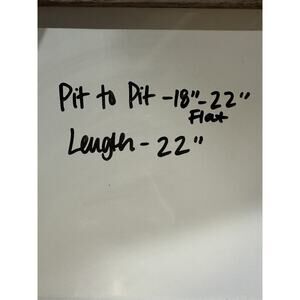 Pit to Pit - 18" - 22"
Flat
Length - 22"